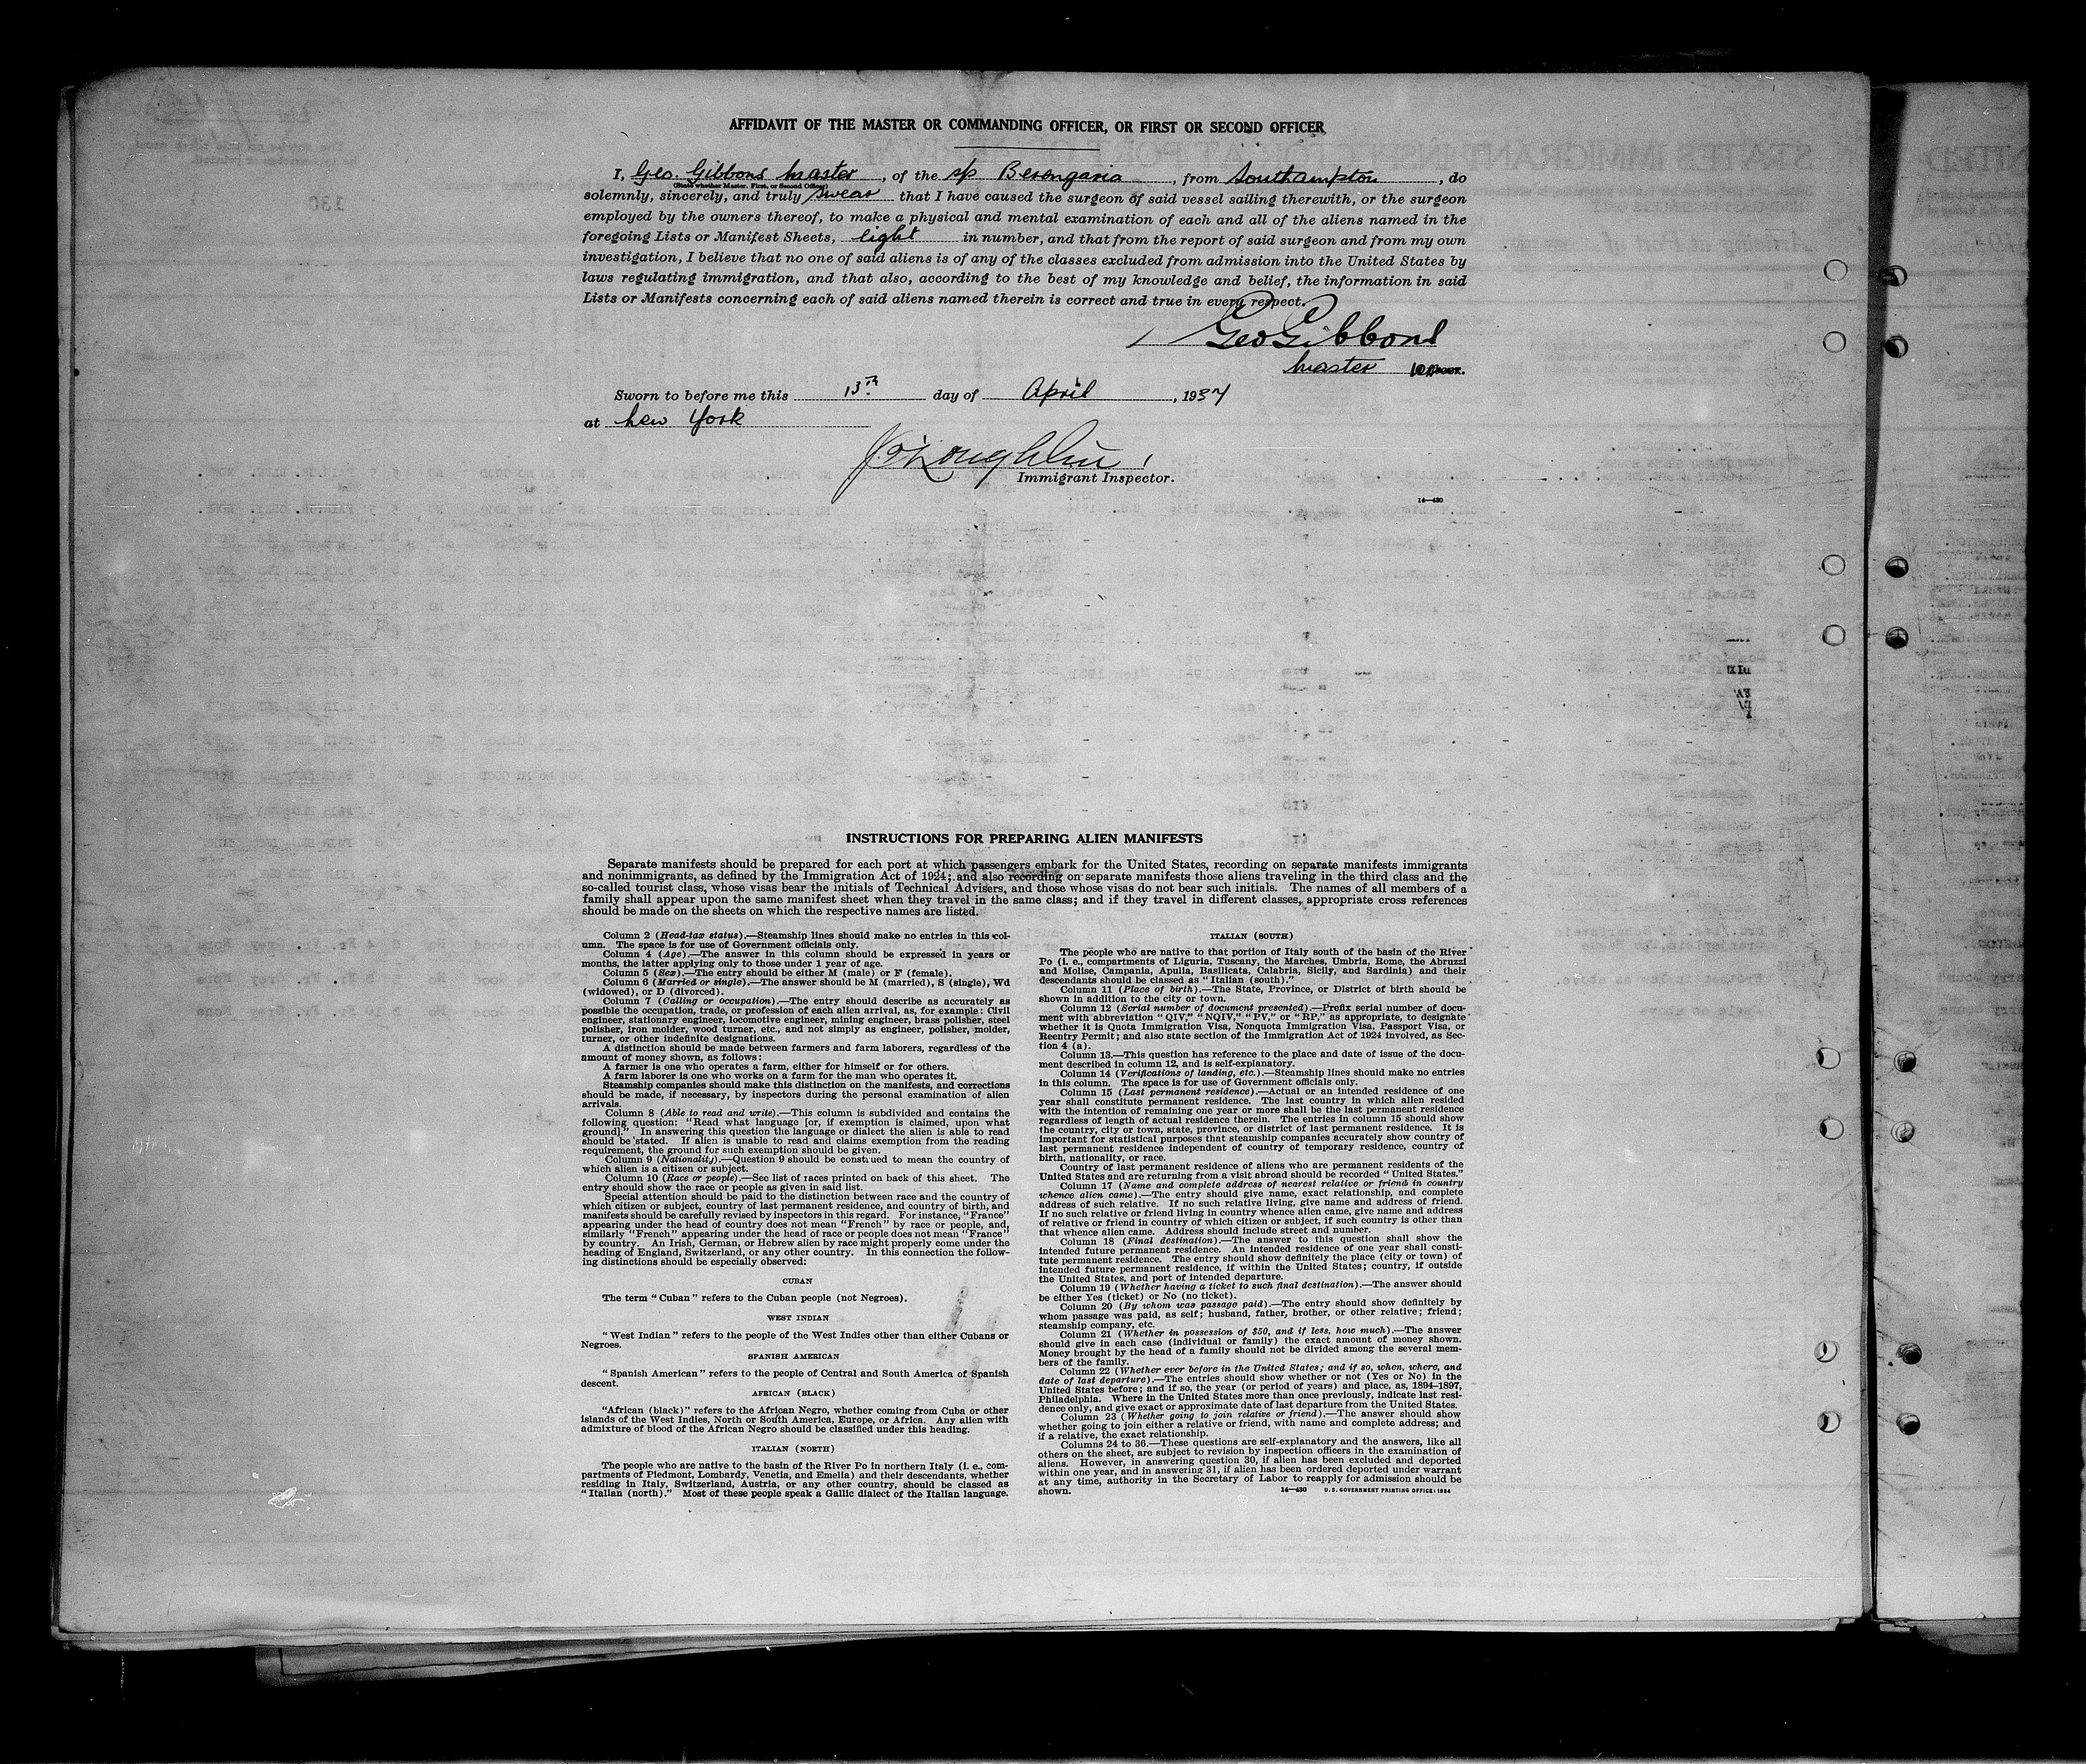 AFFIDAVIT OF THE MASTER OR COMMANDING OFFICER, OR FIRST OR SECOND OFFICER
I, Geo. Gibbons Master, of the s/s Berengaria, from Southampton, do
(State whether Master, First, or Second Officer)
solemnly, sincerely, and truly swear that I have caused the surgeon of said vessel sailing therewith, or the surgeon
employed by the owners thereof, to make a physical and mental examination of each and all of the aliens named in the
foregoing Lists or Manifest Sheets, eight in number, and that from the report of said surgeon and from my own
investigation, I believe that no one of said aliens is of any of the classes excluded from admission into the United States by
laws regulating immigration, and that also, according to the best of my knowledge and belief, the information in said
Lists or Manifests concerning each of said aliens named therein is correct and true in every respect.
Geo Gibbons
Master
Sworn to before me this 13th day of April, 1937
at New York
Immigrant Inspector.
14—430
INSTRUCTIONS FOR PREPARING ALIEN MANIFESTS
Separate manifests should be prepared for each port at which passengers embark for the United States, recording on separate manifests immigrants
and nonimmigrants, as defined by the Immigration Act of 1924; and also recording on separate manifests those aliens traveling in the third class and the
so-called tourist class, whose visas bear the initials of Technical Advisers, and those whose visas do not bear such initials. The names of all members of a
family shall appear upon the same manifest sheet when they travel in the same class; and if they travel in different classes, appropriate cross references
should be made on the sheets on which the respective names are listed.
Column 2 (Head-tax status).—Steamship lines should make no entries in this col-
umn. The space is for use of Government officials only.
Column 4 (Age).—The answer in this column should be expressed in years or
months, the latter applying only to those under 1 year of age.
Column 5 (Sex).—The entry should be either M (male) or F (female).
Column 6 (Married or single).—The answer should be M (married), S (single), Wd
(widowed), or D (divorced).
Column 7 (Calling or occupation).—The entry should describe as accurately as
possible the occupation, trade, or profession of each alien arrival, as, for example: Civil
engineer, stationary engineer, locomotive engineer, mining engineer, brass polisher, steel
polisher, iron molder, wood turner, etc., and not simply as engineer, polisher, molder,
turner, or other indefinite designations.
A distinction should be made between farmers and farm laborers, regardless of the
amount of money shown, as follows:
A farmer is one who operates a farm, either for himself or for others.
A farm laborer is one who works on a farm for the man who operates it.
Steamship companies should make this distinction on the manifests, and corrections
should be made, if necessary, by inspectors during the personal examination of alien
arrivals.
Column 8 (Able to read and write).—This column is subdivided and contains the
following question: "Read what language [or, if exemption is claimed, upon what
ground]." In answering this question the language or dialect the alien is able to read
should be stated. If alien is unable to read and claims exemption from the reading
requirement, the ground for such exemption should be given.
Column 9 (Nationality).—Question 9 should be construed to mean the country of
which alien is a citizen or subject.
Column 10 (Race or people).—See list of races printed on back of this sheet. The
entry should show the race or people as given in said list.
Special attention should be paid to the distinction between race and the country of
which citizen or subject, country of last permanent residence, and country of birth, and
manifests should be carefully revised by inspectors in this regard. For instance, "France"
appearing under the head of country does not mean "French" by race or people, and,
similarly "French" appearing under the head of race or people does not mean "France"
by country. An Irish, German, or Hebrew alien by race might properly come under the
heading of England, Switzerland, or any other country. In this connection the follow-
ing distinctions should be especially observed:
CUBAN
The term "Cuban" refers to the Cuban people (not Negroes).
WEST INDIAN
"West Indian" refers to the people of the West Indies other than either Cubans or
Negroes.
SPANISH AMERICAN
"Spanish American" refers to the people of Central and South America of Spanish
descent.
AFRICAN (BLACK)
"African (black)" refers to the African Negro, whether coming from Cuba or other
islands of the West Indies, North or South America, Europe, or Africa. Any alien with
admixture of blood of the African Negro should be classified under this heading.
ITALIAN (NORTH)
The people who are native to the basin of the River Po in northern Italy (i. e., com-
partments of Piedmont, Lombardy, Venetia, and Emelia) and their descendants, whether
residing in Italy, Switzerland, Austria, or any other country, should be classed as
"Italian (north)." Most of these people speak a Gallic dialect of the Italian language.
ITALIAN (SOUTH)
The people who are native to that portion of Italy south of the basin of the River
Po (i. e., compartments of Liguria, Tuscany, the Marches, Umbria, Rome, the Abruzzi
and Molise, Campania, Apulia, Basilicata, Calabria, Sicily, and Sardinia) and their
descendants should be classed as "Italian (south)."
Column 11 (Place of birth).—The State, Province, or District of birth should be
shown in addition to the city or town.
Column 12 (Serial number of document presented).—Prefix serial number of docu-
ment with abbreviation "QIV," "NQIV," "PV," or "RP," as appropriate, to designate
whether it is Quota Immigration Visa, Nonquota Immigration Visa, Passport Visa, or
Reentry Permit; and also state section of the Immigration Act of 1924 involved, as Sec-
tion 4 (a).
Column 13.—This question has reference to the place and date of issue of the docu-
ment described in column 12, and is self-explanatory.
Column 14 (Verifications of landing, etc.).—Steamship lines should make no entries
in this column. The space is for use of Government officials only.
Column 15 (Last permanent residence).—Actual or an intended residence of one
year shall constitute permanent residence. The last country in which alien resided
with the intention of remaining one year or more shall be the last permanent residence
regardless of length of actual residence therein. The entries in column 15 should show
the country, city or town, state, province, or district of last permanent residence. It is
important for statistical purposes that steamship companies accurately show country of
last permanent residence independent of country of temporary residence, country of
birth, nationality, or race.
Country of last permanent residence of aliens who are permanent residents of the
United States and are returning from a visit abroad should be recorded "United States."
Column 17 (Name and complete address of nearest relative or friend in country
whence alien came).—The entry should give name, exact relationship, and complete
address of such relative. If no such relative living, give name and address of friend.
If no such relative or friend living in country whence alien came, give name and address
of relative or friend in country of which citizen or subject, if such country is other than
that whence alien came. Address should include street and number.
Column 18 (Final destination).—The answer to this question shall show the
intended future permanent residence. An intended residence of one year shall consti-
tute permanent residence. The entry should show definitely the place (city or town) of
intended future permanent residence, if within the United States; country, if outside
the United States, and port of intended departure.
Column 19 (Whether having a ticket to such final destination).—The answer should
be either Yes (ticket) or No (no ticket).
Column 20 (By whom was passage paid).—The entry should show definitely by
whom passage was paid, as self; husband, father, brother, or other relative; friend;
steamship company, etc.
Column 21 (Whether in possession of $50, and if less, how much).—The answer
should give in each case (individual or family) the exact amount of money shown.
Money brought by the head of a family should not be divided among the several mem-
bers of the family.
Column 22 (Whether ever before in the United States; and if so, when, where, and
date of last departure).—The entries should show whether or not (Yes or No) in the
United States before; and if so, the year (or period of years) and place, as, 1894–1897,
Philadelphia. Where in the United States more than once previously, indicate last resi-
dence only, and give exact or approximate date of last departure from the United States.
Column 23 (Whether going to join relative or friend).—The answer should show
whether going to join either a relative or friend, with name and complete address; and
if a relative, the exact relationship.
Columns 24 to 36.—These questions are self-explanatory and the answers, like all
others on the sheet, are subject to revision by inspection officers in the examination of
aliens. However, in answering question 30, if alien has been excluded and deported
within one year, and in answering 31, if alien has been ordered deported under warrant
at any time, authority in the Secretary of Labor to reapply for admission should be
shown.
14—430 U. S. GOVERNMENT PRINTING OFFICE: 1934